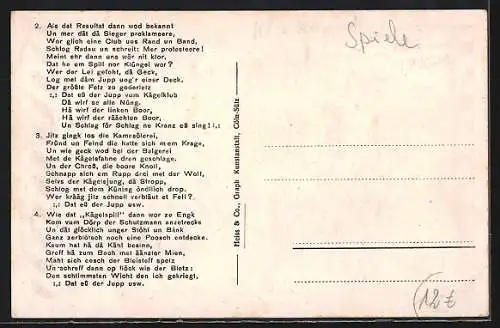 2. Als dat Resultat dann wod bekannt
Un mer dät dä Sieger proklameere,
Wor glich eine Club uus Rand un Band,
Schlog Radau un schreit: Mer protesteere!
Meint ehr dann uns wör nit klor,
Dat he em Spill nor Klüngel wor?
Wer der Lei gefoht, dä Geck,
Log met däm Jupp ung'r einer Deck.
Der größte Fetz zo goderletz
:,: Dat eß der Jupp vum Kägelklub
Dä wirf se alle Nüng.
Hä wirf der linken Boor,
Hä wirf der räächten Boor,
Un Schlog för Schlog ne Kranz eß sing! :,:
3. Jitz gingk los die Kamesölerei,
Fründ un Feind die hatte sich mem Krage,
Un wie geck wod bei der Balgerei
Met de Kägelsfahne dren geschlage.
Un der Chreß, die boore Knoll,
Schnapp sich em Rupp drei met der Wolf,
Selvs der Kägelejung, dä Stropp,
Schlog met dem Küning öndlich drop.
Wer krääg jitz schnell verbläut et Fell?
:,: Dat eß der Jupp usw.
4. Wie dat „Kägelspill" dann wor zo Engk
Kom vum Dörp der Schutzmann anzetrecks
Un dät glöcklich unger Stöhl un Bänk
Ganz zerbiötsch noch eine Poosch entdecke.
Kaum hat hä dä Känt beaine,
Greff hä zum Boch met äänzter Mien,
Maht sich cosch der Bleisteff spetz
Un schreff dann op flöck wie der Bletz:
Den schlimmsten Wicht den ich gekriegt,
:,: Dat eß der Jupp usw.
Heiss & Co., Graph. Kunstanstalt, Cöln-Sülz
Spiele
12€